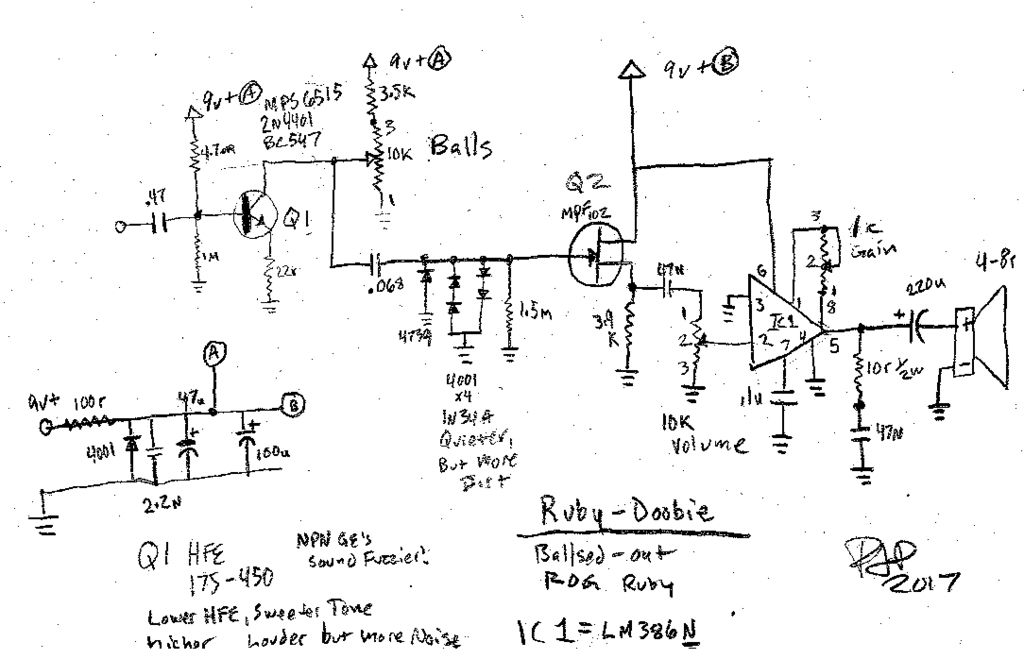 9v+ A
MPS 6515
2N4401
BC547
4.7
.47
1M
Q1
22r
9v+ A
3.5K
3
10K
1
Balls
.068
4739
4001
x4
1N34A
Quieter,
But more
Dist
1.5M
Q2
MPF102
9v+ B
3.9
K
47N
1
2
3
10K
Volume
6
3
2
IC1
7
4
1
8
5
3
2
1
1K
Gain
.1u
220u
+
10r 1/2w
47N
4-8r
+
-
A
9v+
100r
47u
B
4001
+
+
100u
2.2N
Q1 HFE
175-450
NPN GE's
Sound Fuzzier!
Lower HFE, Sweeter Tone
Higher Louder but more Noise
Ruby-Doobie
Ballsed-out
ROG Ruby
IC1=LM386N
2017